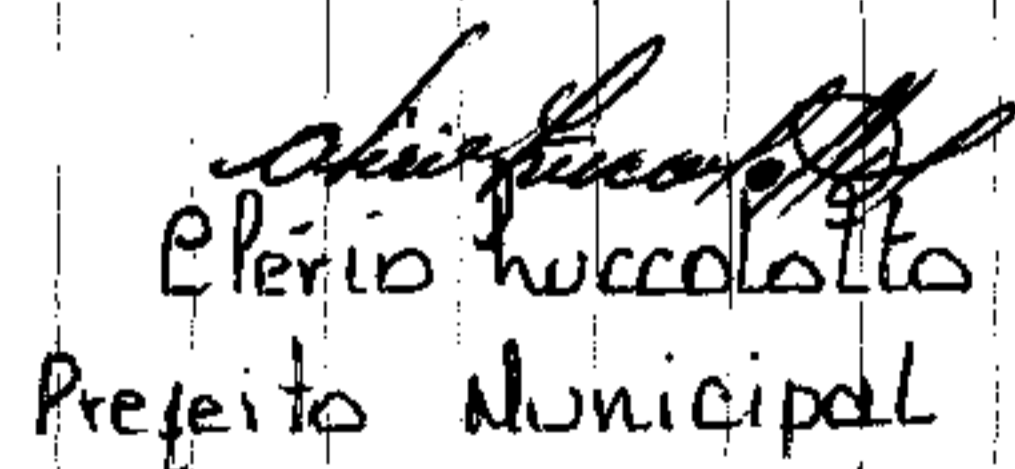 Clério Luccolotto
Prefeito Municipal